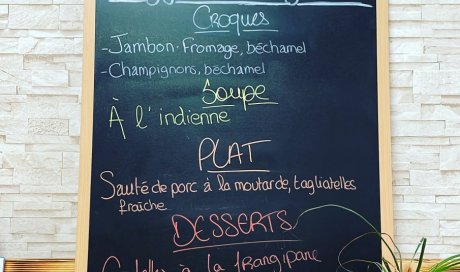 Croques
-Jambon-Fromage, béchamel
-Champignons, béchamel
Soupe
À l'indienne
PLAT
Sauté de porc à la moutarde, tagliatelles
fraîche
DESSERTS
à la frangipane